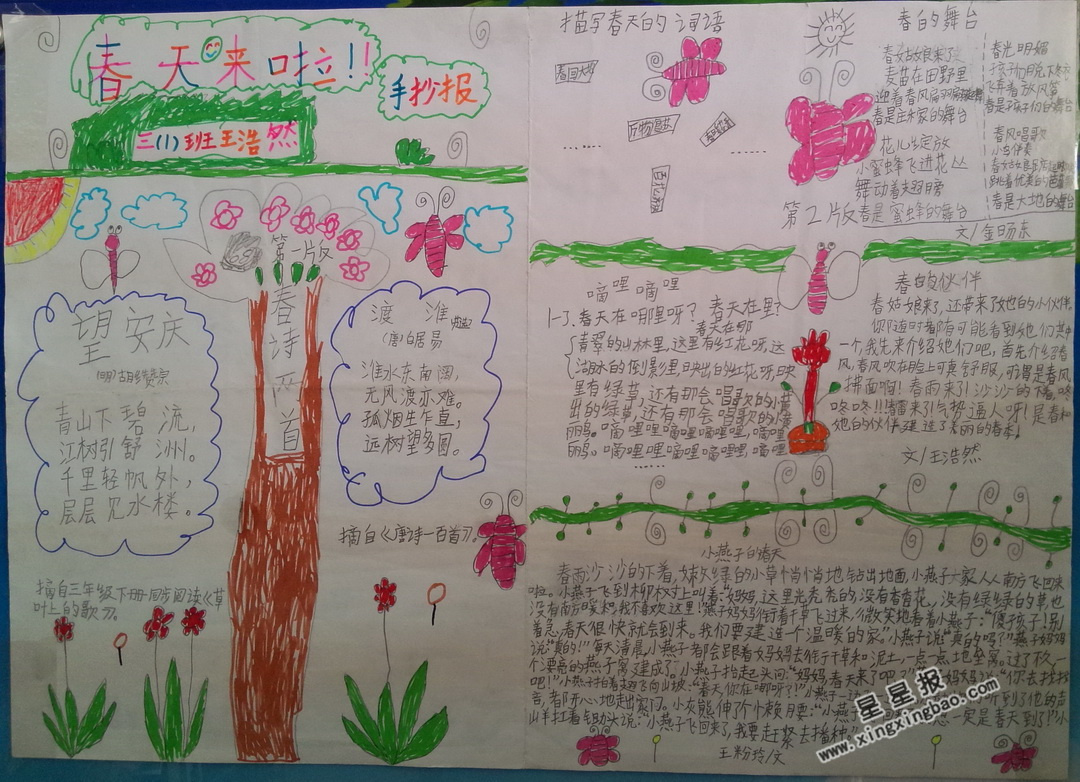 春天来啦!!
手抄报
三(1)班王浩然
第一版
春诗两首
望安庆
(明)胡缵宗
青山下碧流,
江树引舒洲。
千里轻帆外,
层层见水楼。
摘自三年级下册同步阅读《草
叶上的歌》。
渡淮
(唐)白居易
淮水东南阔,
无风渡亦难。
孤烟生乍直,
远树望多圆。
摘自《唐诗一百首》。
描写春天的词语
春回大地
万物复苏
第2版
春的舞台
春姑娘来了
麦苗在田野里
春是庄家的舞台
花儿绽放
小蜜蜂飞进花丛
舞动着翅膀
春是蜜蜂的舞台
春光明媚
放风筝
春是孩子们的舞台
春风唱歌
小鸟伴奏
春是大地的舞台
文/金旸东
嘀哩嘀哩
1-3、春天在哪里呀?春天在哪里?
春天在那
青翠的山林里,这里有红花呀,这
湖水的倒影里,映出的红花呀,映
里有绿草,还有那会唱歌的小黄
出的绿草,还有那会唱歌的小黄
鹂。嘀哩哩嘀哩哩嘀哩哩,嘀哩哩
鹂。嘀哩哩嘀哩哩嘀哩哩,嘀哩哩
春的伙伴
春姑娘来了,还带来了她的小伙伴,
你随时都有可能看到她们其中
一个,我先来介绍她们吧,首先介绍春
风,春风吹在脸上可真舒服,
扑面啊!春雨来了!沙沙的下着。咚
咚咚!!!春雷来了!气势逼人呀!是春和
她的伙伴建造了美丽的春季!
文/王浩然
小燕子的春天
春雨沙沙的下着,嫩绿的小草悄悄地钻出地面,小燕子一家人从南方飞回来
啦。小燕子飞到柳树上叫着:"妈妈,这里光秃秃的,没有香香花,没有绿绿的草,也
没有南方暖和,我不喜欢这里!"燕子妈妈衔着干草飞过来,微笑地看着小燕子:"傻孩子!别
着急,春天很快就会到来。我们要建造一个温暖的家。"小燕子说:"真的吗?"燕子妈妈
说:"真的!"每天清晨,小燕子都会跟着妈妈去衔干草和泥土,一点一点地垒窝。过了
个漂亮的燕子窝建成了。小燕子抬起头问:"妈妈,春天来了吧?"
吧!"小燕子拍着翅飞向山坡:"春天,你在哪呀?!"小燕子一边
告,都开心地走出家门。小灰熊伸了个懒腰:"小燕
山羊扛着锄头说:"小燕子飞回来了,我要赶紧去播种
王粉玲/文
星星报
www.xingxingbao.com